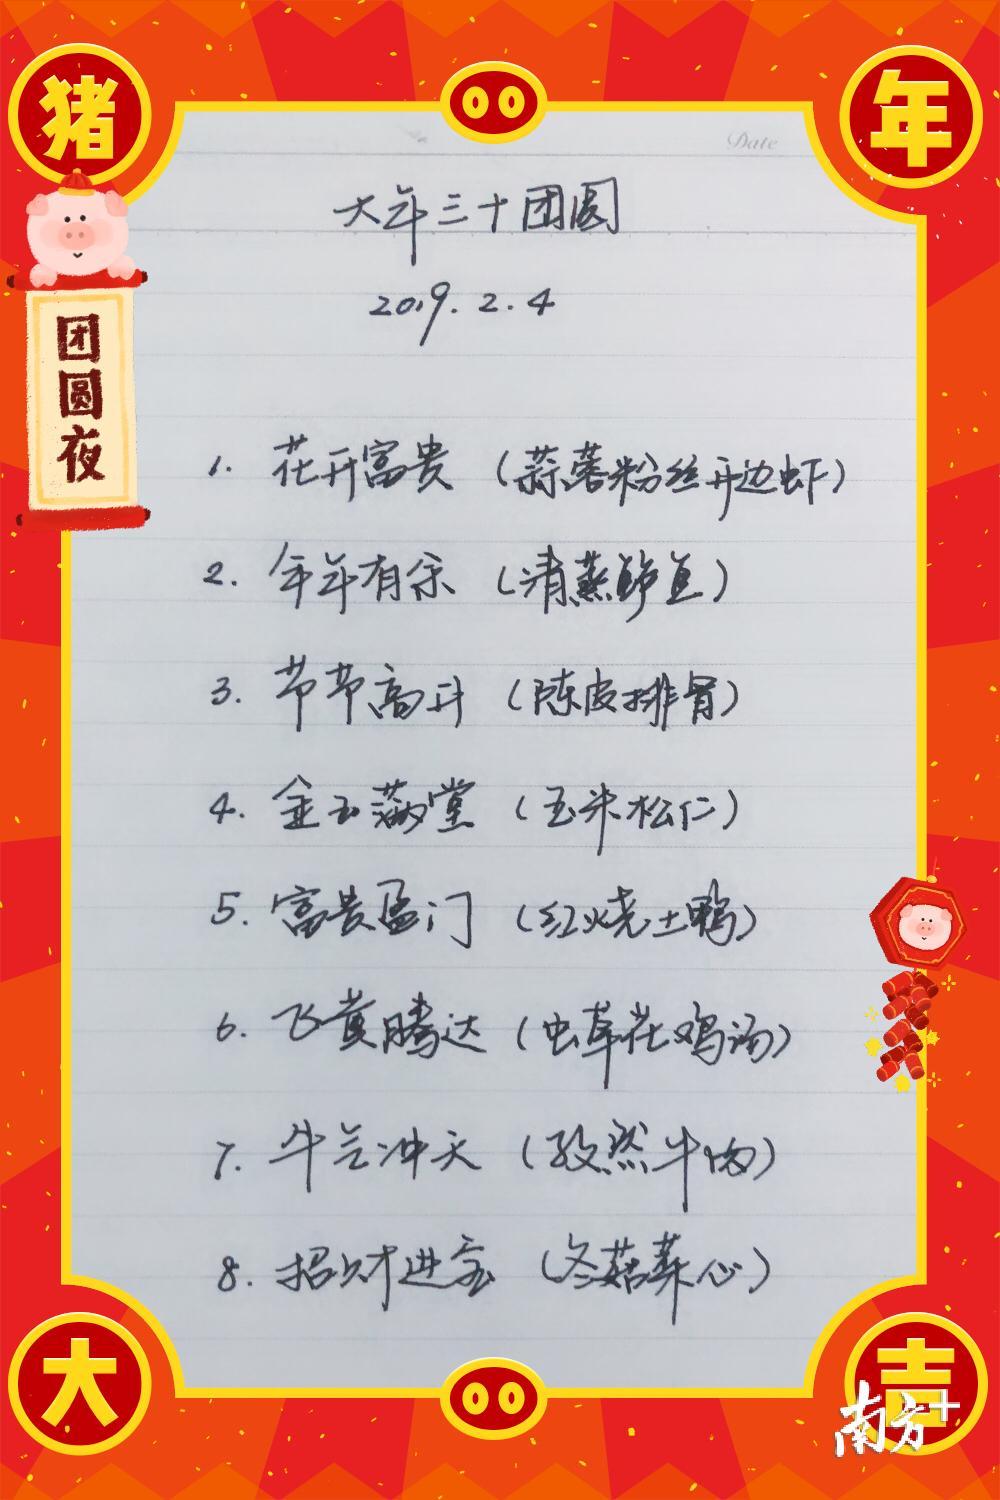 猪
年
团圆夜
Date
大年三十团圆
2019.2.4
1. 花开富贵（蒜蓉粉丝开边虾）
2. 年年有余（清蒸鲈鱼）
3. 节节高升（陈皮排骨）
4. 金玉满堂（玉米松仁）
5. 富贵盈门（红烧土鸭）
6. 飞黄腾达（虫草花鸡汤）
7. 牛气冲天（孜然牛肉）
8. 招财进宝（冬菇菜心）
大
吉
南方+